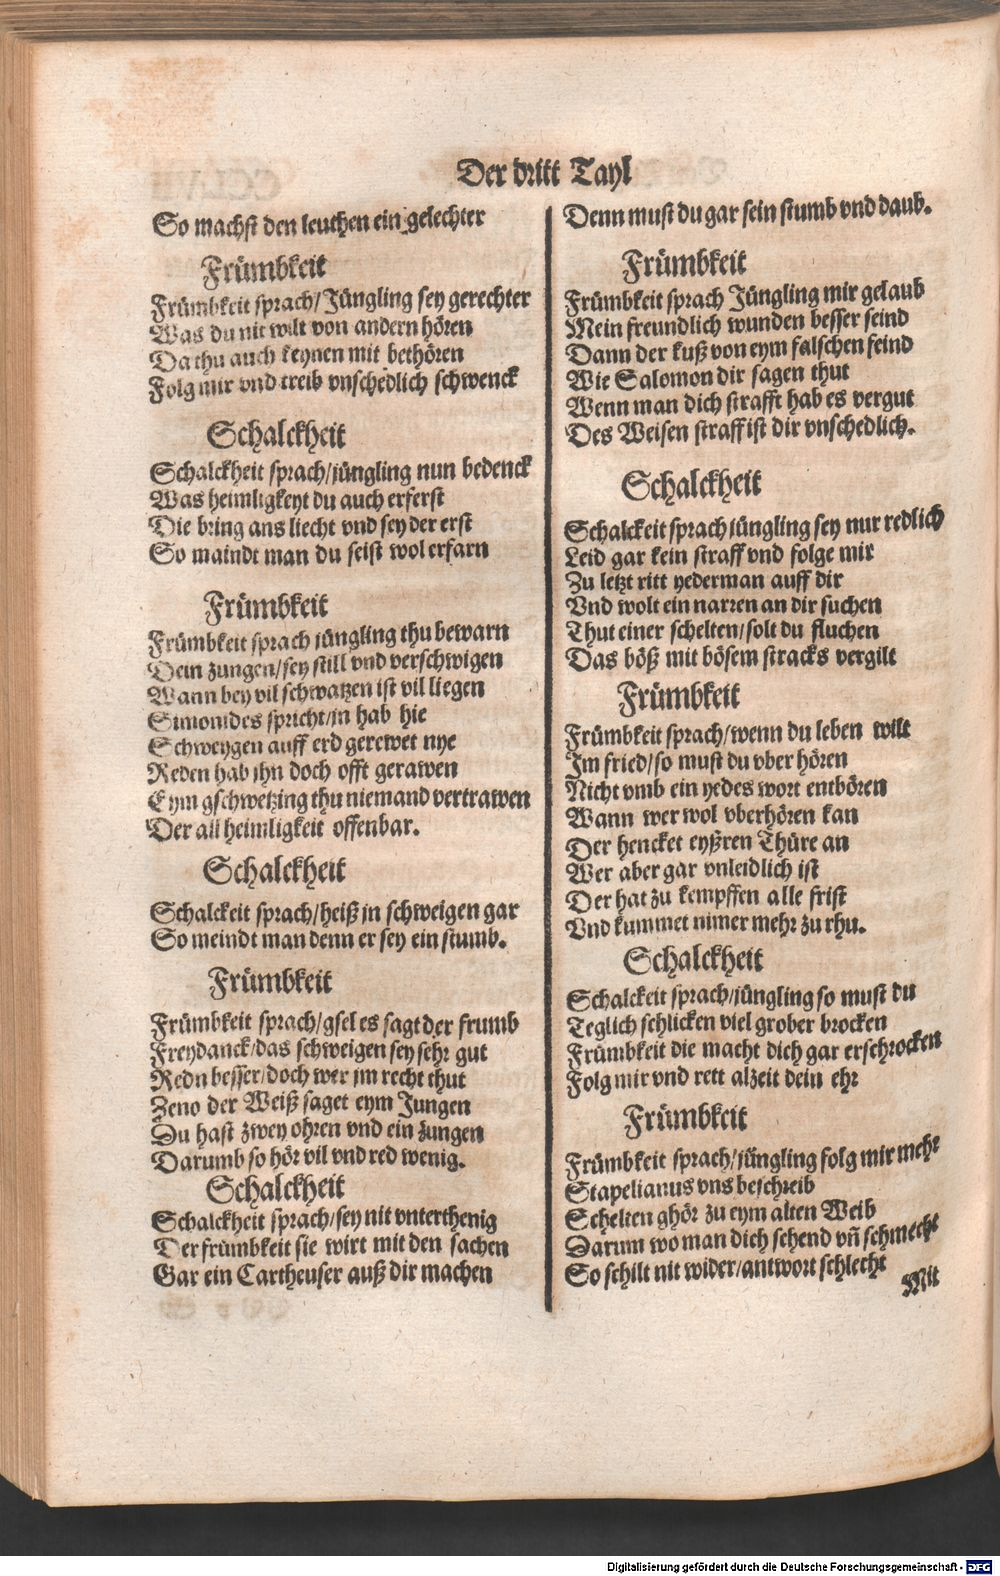 Der dritt Tayl
So machst den leuthen ein gelechter
Frümbkeit
Frümbkeit sprach/Jüngling sey gerechter
Was du nit wilt von andern hören
Da thu auch keynen mit bethören
Folg mir vnd treib vnschedlich schwenck
Schalckheit
Schalckheit sprach/jüngling nun bedenck
Was heimligkeyt du auch erferst
Die bring ans liecht vnd sey der erst
So maindt man du seist wol erfarn
Frümbkeit
Frümbkeit sprach jüngling thu bewarn
Dein zungen/sey still vnd verschwigen
Wann bey vil schwatzen ist vil liegen
Simonides spricht/jn hab hie
Schweygen auff erd gerewet nye
Reden hab jhn doch offt gerawen
Eym gschwetzing thu niemand vertrawen
Der all heimligkeit offenbar.
Schalckheit
Schalckeit sprach/heiß jn schweigen gar
So meindt man denn er sey ein stumb.
Frümbkeit
Frümbkeit sprach/gsel es sagt der frumb
Freydanck/das schweigen sey sehr gut
Redn besser/doch wer jm recht thut
Zeno der Weiß saget eym Jungen
Du hast zwey ohren vnd ein zungen
Darumb so hör vil vnd red wenig.
Schalckheit
Schalckheit sprach/sey nit vnterthenig
Der frümbkeit sie wirt mit den sachen
Gar ein Cartheuser auß dir machen
Denn must du gar sein stumb vnd daub.
Frümbkeit
Frümbkeit sprach Jüngling mir gelaub
Mein freundlich wunden besser seind
Dann der kuß von eym falschen feind
Wie Salomon dir sagen thut
Wenn man dich strafft hab es vergut
Des Weisen straff ist dir vnschedlich.
Schalckheit
Schalckeit sprach jüngling sey nur redlich
Leid gar kein straff vnd folge mir
Zu letzt ritt yederman auff dir
Vnd wolt ein narren an dir suchen
Thut einer schelten/solt du fluchen
Das böß mit bösem stracks vergilt
Frümbkeit
Frümbkeit sprach/wenn du leben wilt
Im fried/so must du vber hören
Nicht vmb ein yedes wort entbören
Wann wer wol vberhören kan
Der hencket eyßren Thüre an
Wer aber gar vnleidlich ist
Der hat zu kempffen alle frist
Vnd kummet nimer mehr zu rhu.
Schalckheit
Schalckeit sprach/jüngling so must du
Teglich schlicken viel grober brocken
Frümbkeit die macht dich gar erschrocken
Folg mir vnd rett alzeit dein ehr
Frümbkeit
Frümbkeit sprach/jüngling folg mir mehr
Stapelianus vns beschreib
Schelten ghör zu eym alten Weib
Darum wo man dich schend vñ schmecht
So schilt nit wider/antwort schlecht
Mit
Digitalisierung gefördert durch die Deutsche Forschungsgemeinschaft - DFG